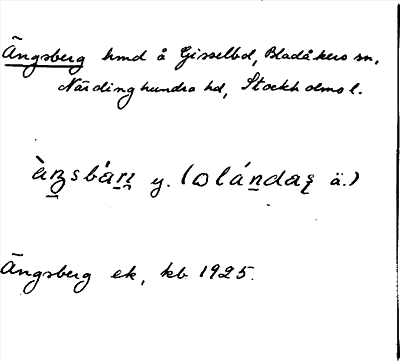 Ängsberg hmd å Gisselbol, Bladåkers sn,
Närdinghundra hd, Stockholms l.
y. ( ä.)
Ängsberg ek, kb 1925.